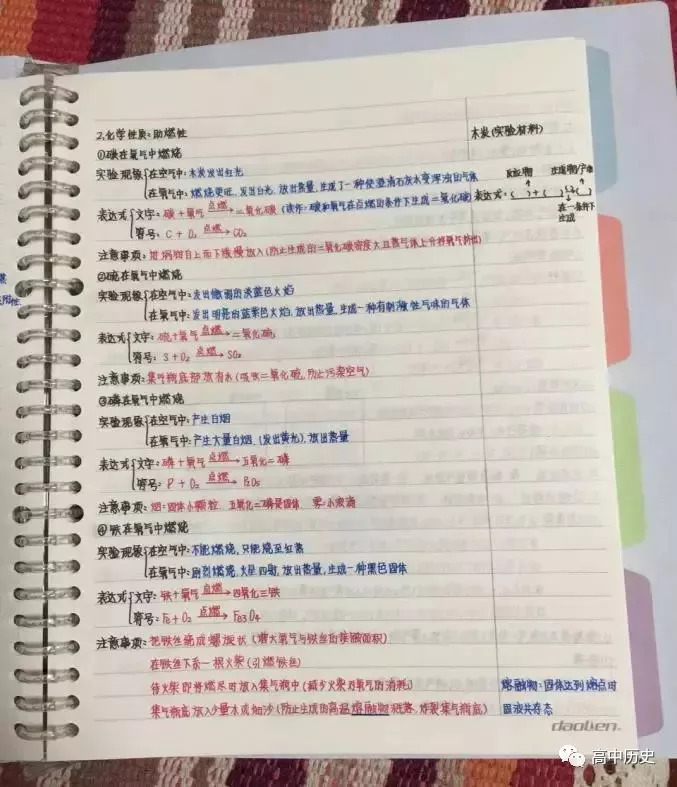 2.化学性质：助燃性
木炭(实验材料)
①碳在氧气中燃烧
实验现象{在空气中：木炭发出红光
在氧气中：燃烧更旺，发出白光，放出热量，生成了一种使澄清石灰水变浑浊的气体
反应物 生成物/产物
表达式：( )+( ) ( )
在一条件下
生成
表达式{文字：碳+氧气 点燃→ 二氧化碳 (读作：碳和氧气在点燃的条件下生成二氧化碳)
符号：C + O₂ 点燃→ CO₂
注意事项：坩埚钳自上而下缓慢放入(防止生成的二氧化碳密度大且热气体上升将氧气挤出)
②硫在氧气中燃烧
实验现象{在空气中：发出微弱的淡蓝色火焰
在氧气中：发出明亮的蓝紫色火焰，放出热量，生成一种有刺激性气味的气体
表达式{文字：硫+氧气 点燃→ 二氧化硫
符号：S+O₂ 点燃→ SO₂
注意事项：集气瓶底部放有水(吸收二氧化硫，防止污染空气)
③磷在氧气中燃烧
实验现象{在空气中：产生白烟
在氧气中：产生大量白烟，(发出黄光)，放出热量
表达式{文字：磷+氧气 点燃→ 五氧化二磷
符号：P + O₂ 点燃→ P₂O₅
注意事项：烟：固体小颗粒 五氧化二磷是固体 雾：小液滴
④铁在氧气中燃烧
实验现象{在空气中：不能燃烧，只能烧至红热
在氧气中：剧烈燃烧，火星四射，放出热量，生成一种黑色固体
表达式{文字：铁+氧气 点燃→ 四氧化三铁
符号：Fe+O₂ 点燃→ Fe₃O₄
注意事项：把铁丝绕成螺旋状(增大氧气与铁丝的接触面积)
在铁丝下系一根火柴(引燃铁丝)
待火柴即将燃尽时放入集气瓶中(减少火柴对氧气的消耗)
熔融物：固体达到熔点时
集气瓶底放入少量水或细沙(防止生成的高温熔融物溅落，炸裂集气瓶底)
固液共存态
daolien.
高中历史